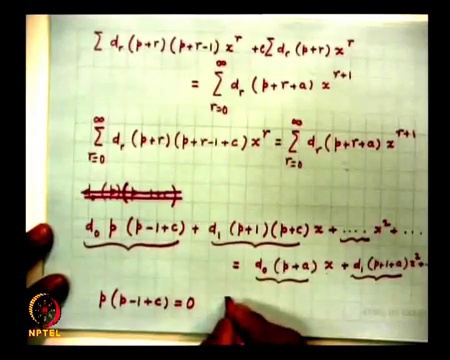 Σ dᵣ (p+r) (p+r-1) xʳ + cΣ dᵣ (p+r) xʳ
= Σ_{r=0}^{∞} dᵣ (p+r+a) x^{r+1}
Σ_{r=0}^{∞} dᵣ (p+r) (p+r-1+c) xʳ = Σ_{r=0}^{∞} dᵣ (p+r+a) x^{r+1}
d₀ p (p-1+c) + d₁ (p+1) (p+c) x + .... x² + ...
= d₀ (p+a) x + d₁ (p+1+a) x² + ..
p (p-1+c) = 0
NPTEL